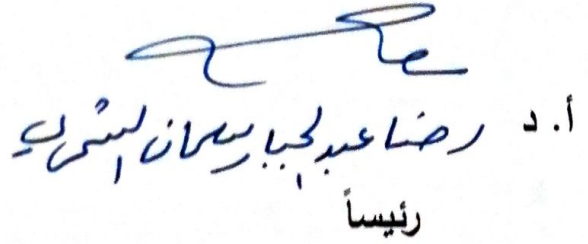 أ.د رضا عبد الجبار سلمان الشمري
رئيساً